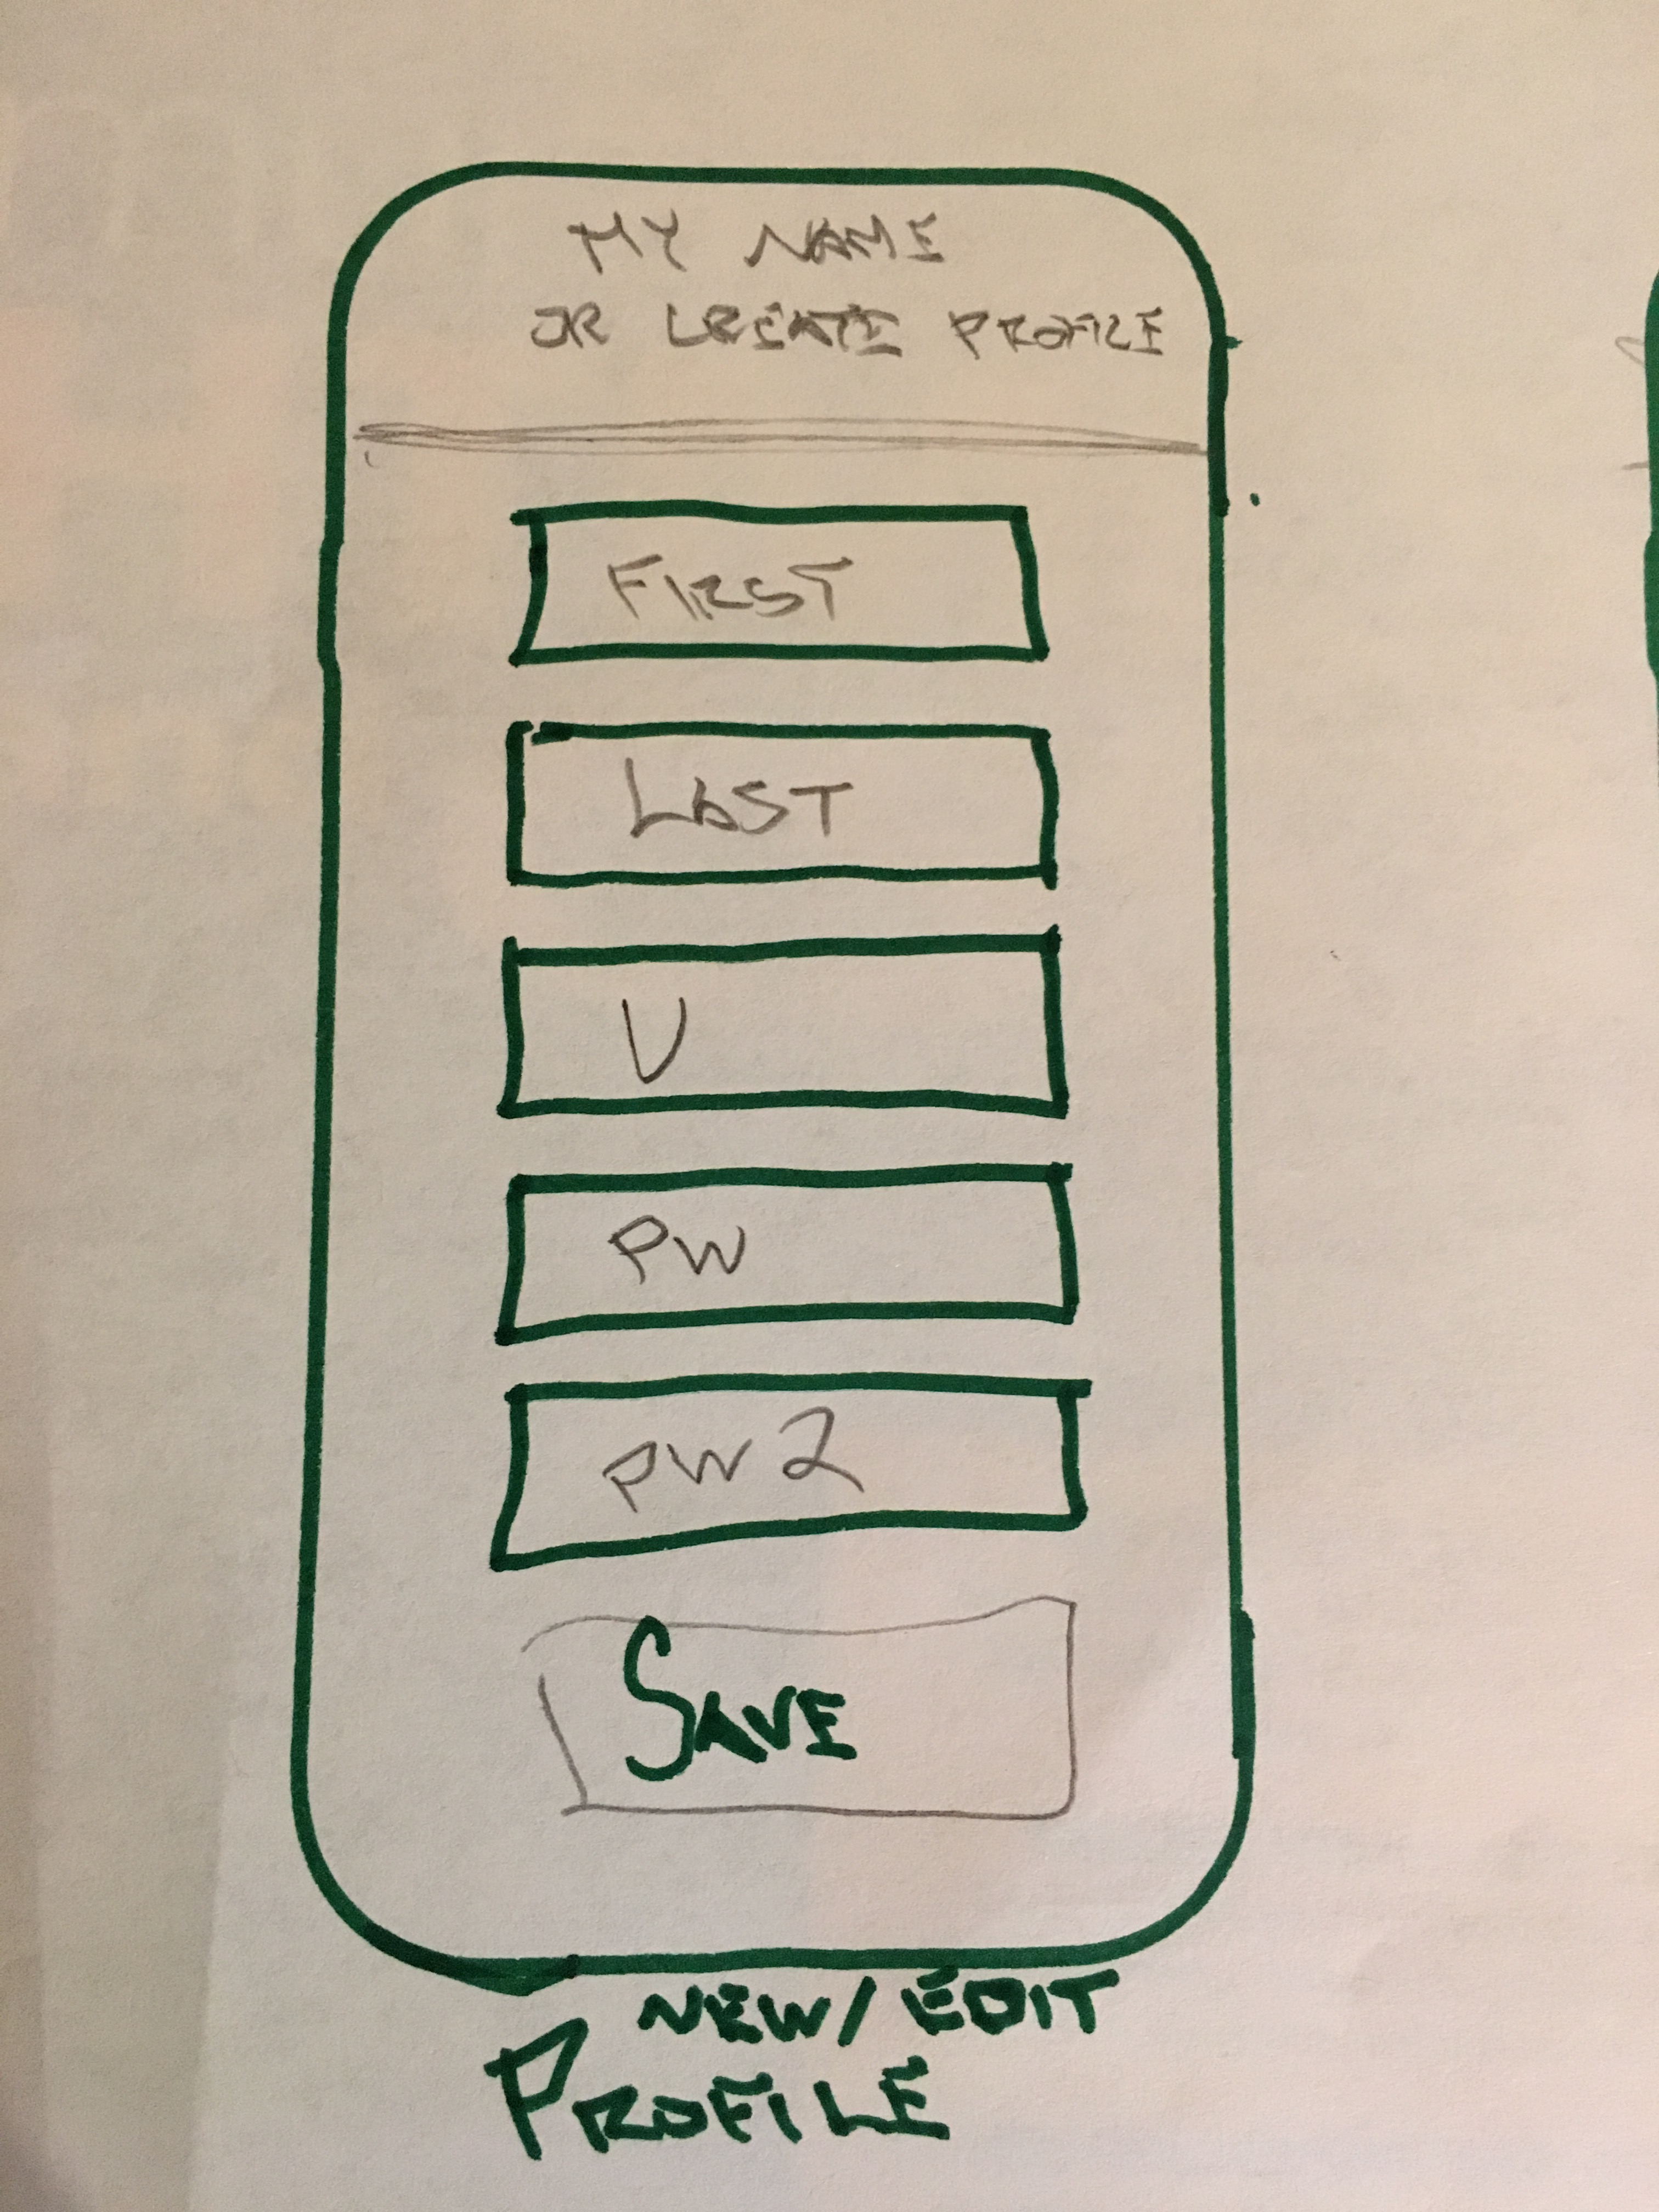 MY NAME
OR CREATE PROFILE
FIRST
LAST
U
PW
PW2
SAVE
NEW/EDIT
PROFILE